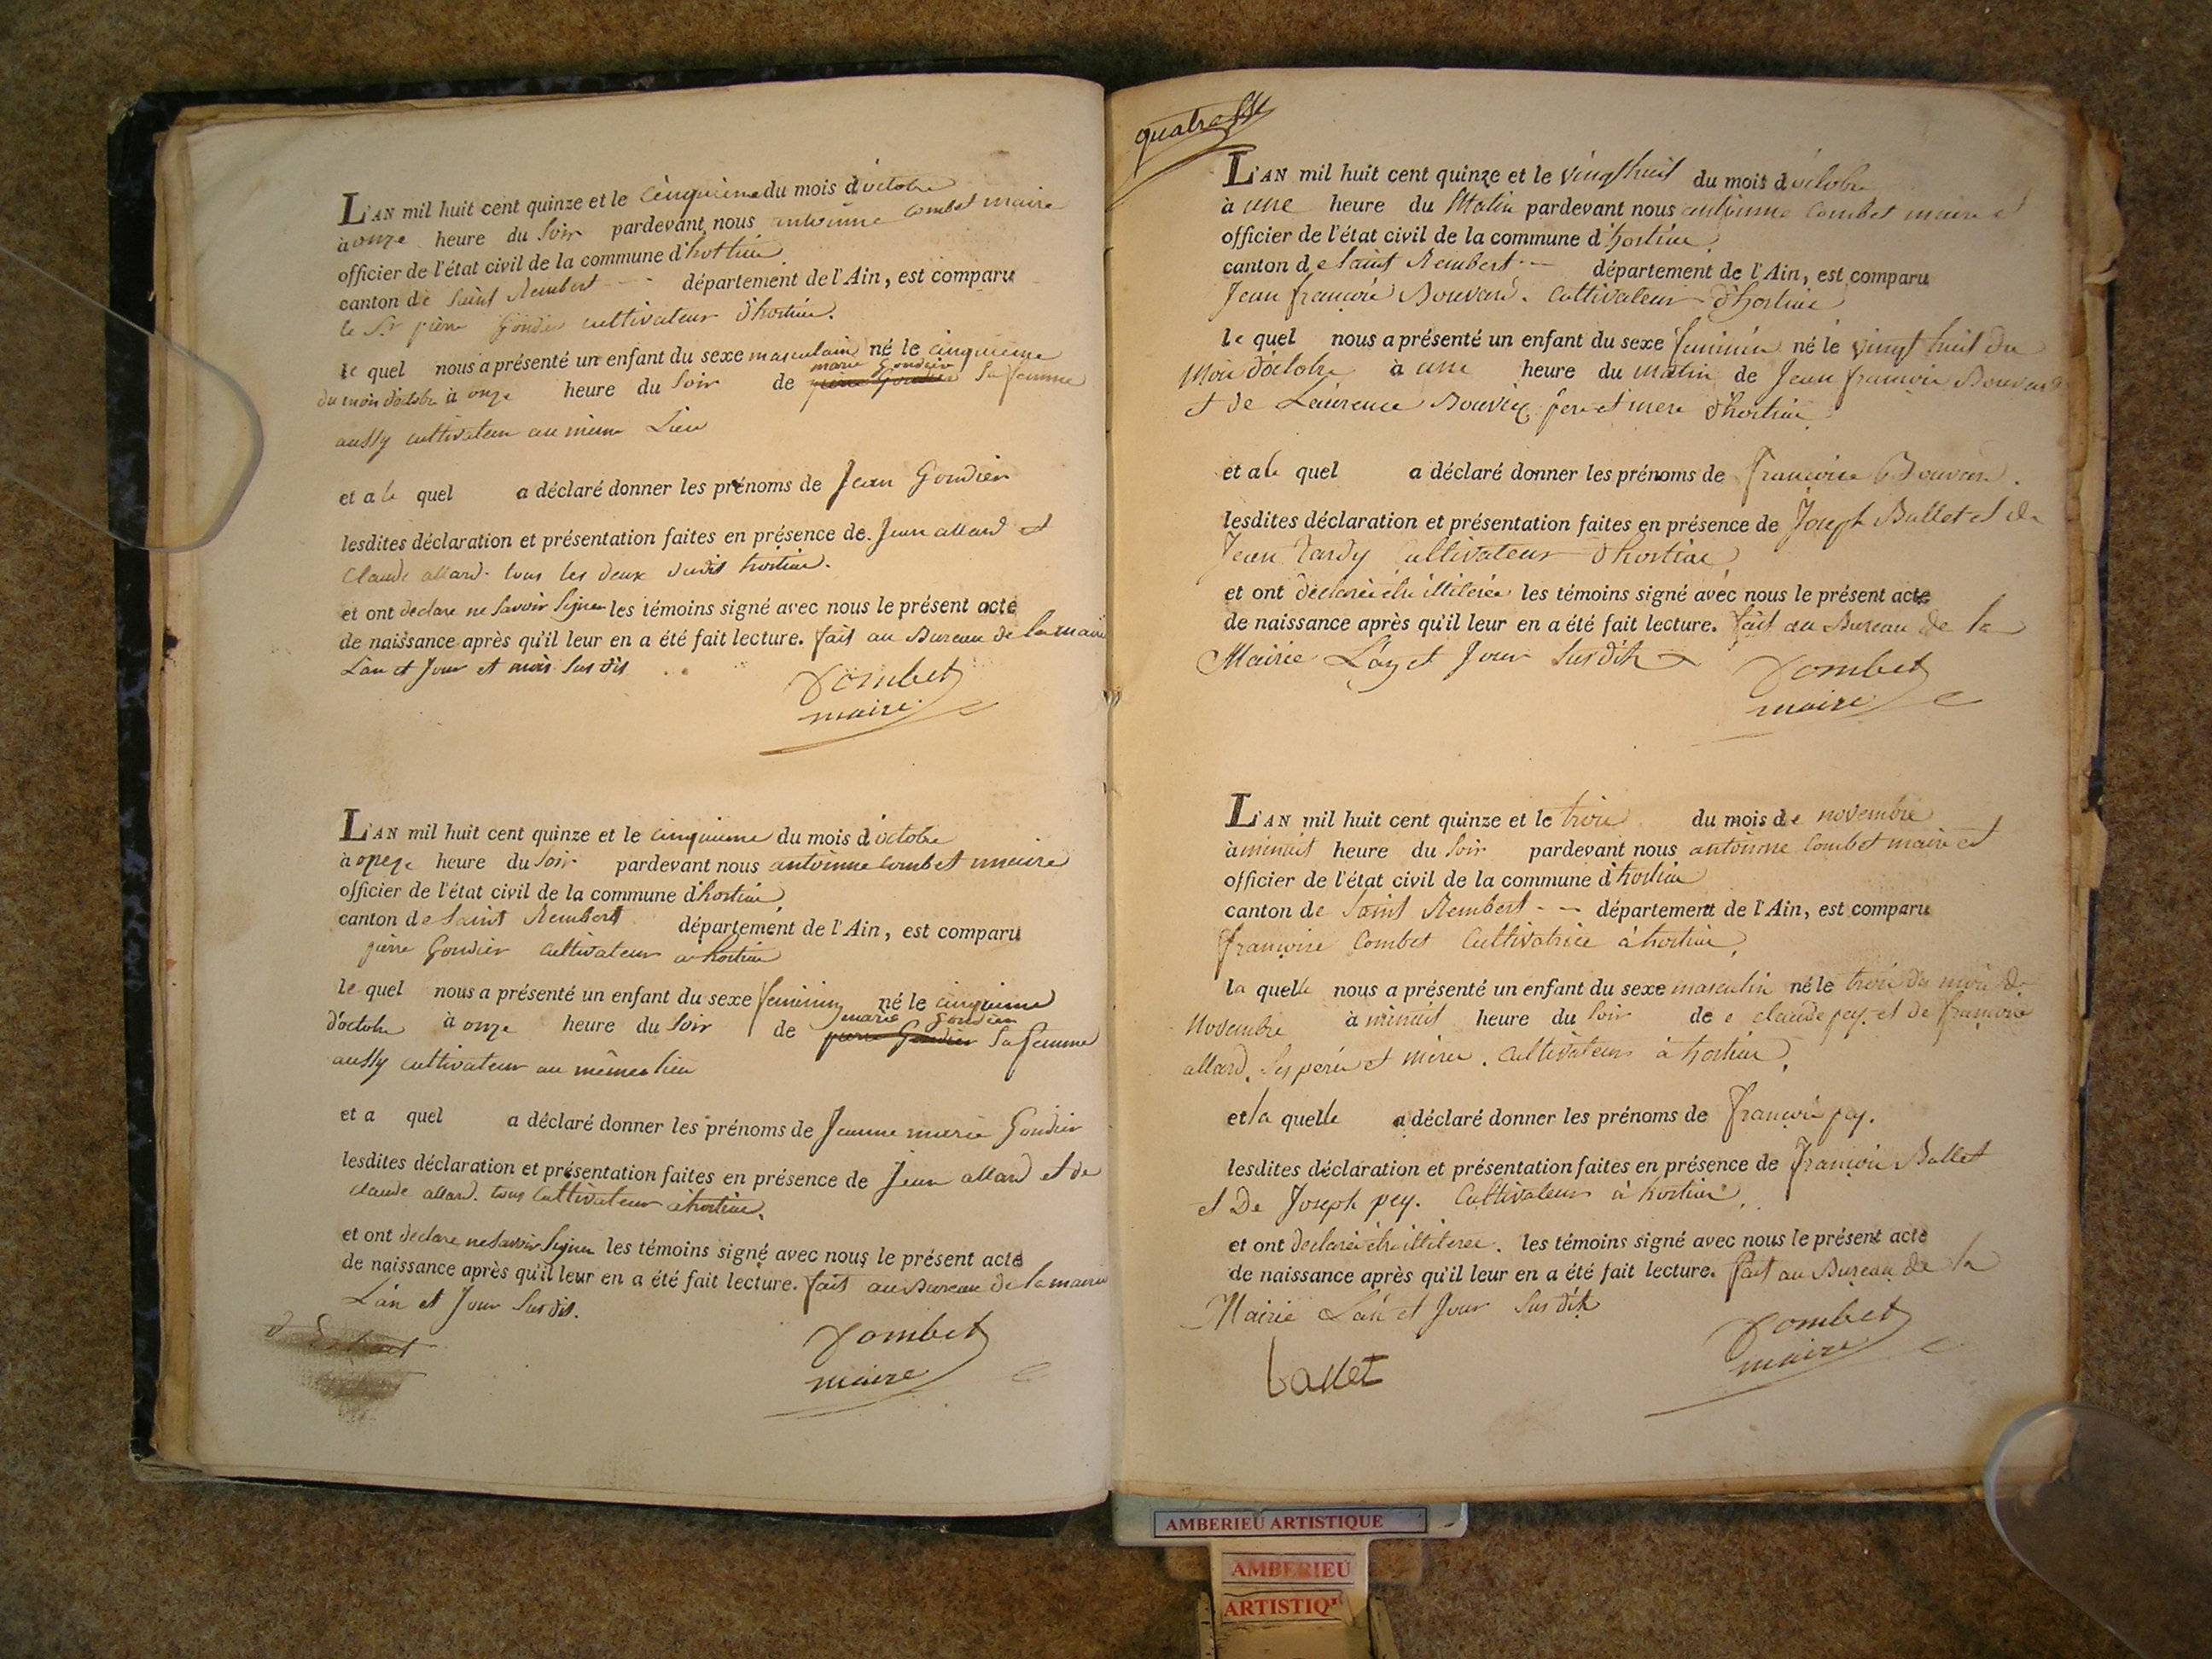 L'AN mil huit cent quinze et le cinquieme du mois d'octobre
à onze heure du soir pardevant nous antoinne combet maire
officier de l'état civil de la commune d'hostiae
canton de saint Rembert -- département de l'Ain, est comparu
le Sr pierre Goudier cultivateur d'hostiae.
le quel nous a présenté un enfant du sexe masculain né le cinquieme
marie Goudier
du mois d'octobre à onze heure du soir de pierre Goudier sa femme
aussy cultivateur au même Lieu
et a le quel a déclaré donner les prénoms de Jean Goudier
lesdites déclaration et présentation faites en présence de Jean allard et
claude allard. tous les deux dudit hostiae.
et ont declare ne savoir signer les témoins signé avec nous le présent acte
de naissance après qu'il leur en a été fait lecture. fait au Bureau de la mairie
L'an et Jour et mois sus dis
Combet
maire
L'AN mil huit cent quinze et le cinquieme du mois d'octobre
à onze heure du soir pardevant nous antoinne combet maire
officier de l'état civil de la commune d'hostiae
canton de saint Rembert département de l'Ain, est comparu
pierre Goudier cultivateur a hostiae
le quel nous a présenté un enfant du sexe feminin né le cinquieme
marie Goudier
d'octobre à onze heure du soir de pierre Goudier sa femme
aussy cultivateur au même lieu
et a quel a déclaré donner les prénoms de Jeanne marie Goudier
lesdites déclaration et présentation faites en présence de Jean allard et de
claude allard. tous cultivateur a hostiae.
et ont declare ne savoir signer les témoins signé avec nous le présent acte
de naissance après qu'il leur en a été fait lecture. fait au Bureau de la mairie
L'an et Jour sus dis.
Combet
maire
quatre
L'AN mil huit cent quinze et le vingt huit du mois d'octobre
à une heure du Matin pardevant nous antoinne combet maire et
officier de l'état civil de la commune d'hostiae
canton de saint Rembert -- département de l'Ain, est comparu
Jean françois Bouvard. cultivateur d'hostiae
le quel nous a présenté un enfant du sexe feminin né le vingt huit du
mois d'octobre à une heure du matin de Jean françois Bouvard
et de Laurence Bouvey pere et mere d'hostiae
et a le quel a déclaré donner les prénoms de françoise Bouvard.
lesdites déclaration et présentation faites en présence de Joseph Ballet et de
Jean Tardy cultivateur d'hostiae
et ont declarée être illiterée les témoins signé avec nous le présent acte
de naissance après qu'il leur en a été fait lecture. fait au Bureau de la
Mairie L'an et Jour sus dit
Combet
maire
L'AN mil huit cent quinze et le trois du mois de novembre
à minuit heure du soir pardevant nous antoinne combet maire et
officier de l'état civil de la commune d'hostiae
canton de saint Rembert -- département de l'Ain, est comparu
françoise combet cultivatrice à hostiae.
la quelle nous a présenté un enfant du sexe masculin né le trois du mois de
Novembre à minuit heure du soir de claude pey. et de françoise
allard. ses peres et mères. cultivateurs à hostiae.
et la quelle a déclaré donner les prénoms de françois pey.
lesdites déclaration et présentation faites en présence de françois Ballet
et De Joseph pey. cultivateurs à hostiae.
et ont declarée être illiterée. les témoins signé avec nous le présent acte
de naissance après qu'il leur en a été fait lecture. fait au Bureau de la
Mairie L'an et Jour sus dit
ballet
Combet
maire
AMBERIEU ARTISTIQUE
AMBERIEU
ARTISTIQ